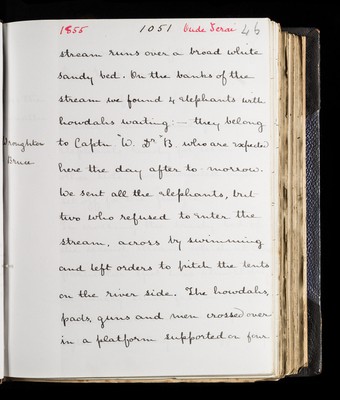 1855 1051 Oude Terai 46
stream runs over a broad white
sandy bed. On the banks of the
stream we found 4 elephants with
howdahs waiting: — they belong
Droughton to Captn "W. Dn "B. who are expected
Bruce here the day after to-morrow.
We sent all the elephants, but
two who refused to enter the
stream, across by swimming
and left orders to pitch the tents
on the river side. The howdahs,
pads, guns and men crossed over
in a platform supported on four